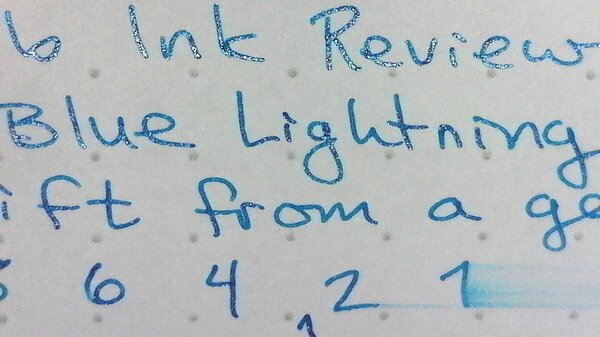 6 Ink Review
Blue Lightning
ift from a ge
6 4 2 1